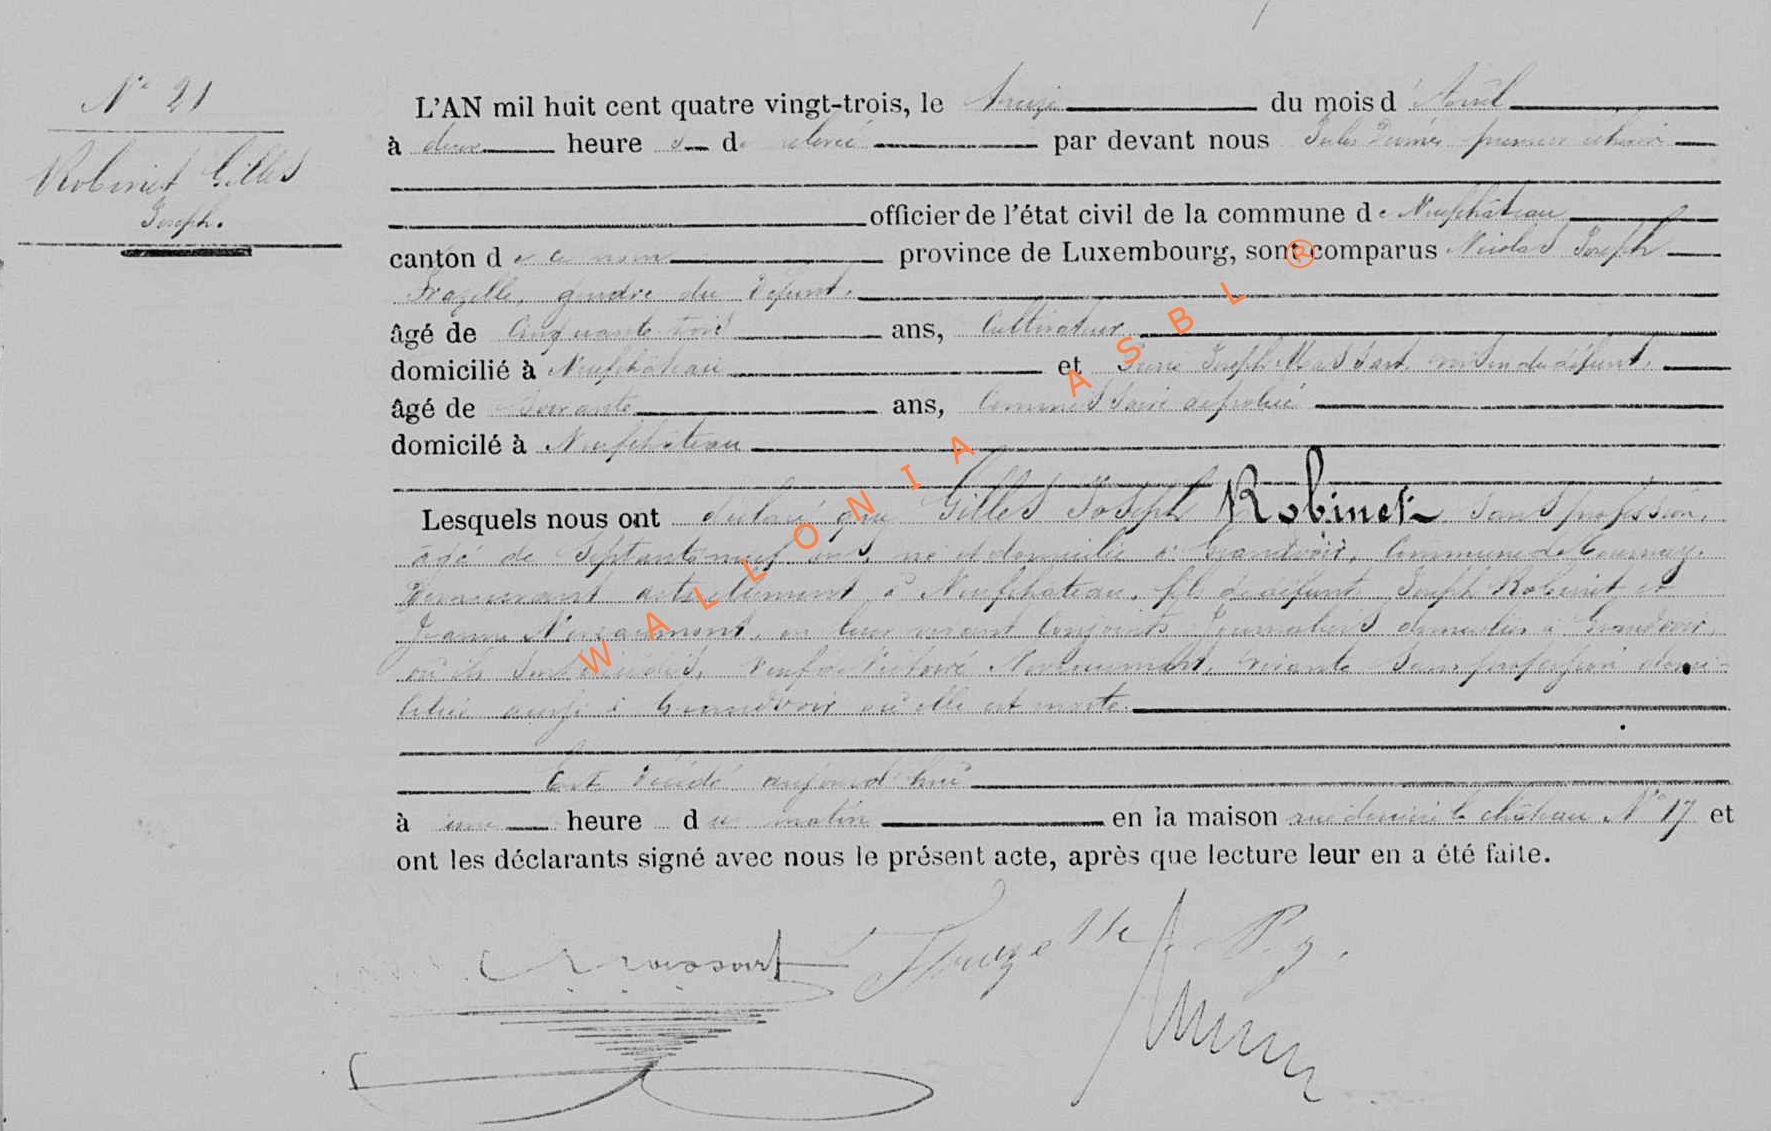 N° 21
Robinet Gilles
Joseph.
L'AN mil huit cent quatre vingt-trois, le treize du mois d'Avril
à deux heure s de relevée par devant nous Jules premier échevin
officier de l'état civil de la commune de Neufchâteau
canton de ce nom province de Luxembourg, sont comparus Nicolas Joseph
gendre du défunt.
âgé de Cinquante trois ans, Cultivateur
domicilié à Neufchâteau et Pierre Joseph voisin du défunt.
âgé de ans, Commissaire de police
domicilé à Neufchâteau
Lesquels nous ont déclaré que Gilles Joseph Robinet sans profession,
âgé de Septante neuf ans, né et domicilié à Grandvoir, Commune de Tournay.
Demeurant actuellement à Neufchâteau, fils de défunt Joseph Robinet et
Jeanne en leur vivant Conjoints Journaliers domiciliés à Grandvoir,
où ils sont décédés, veuf de Victoire vivante sans profession domi-
ciliée aussi à Grandvoir où elle est morte.
Est décédé aujourd'hui
à une heure du matin en la maison rue derrière le château N° 17 et
ont les déclarants signé avec nous le présent acte, après que lecture leur en a été faite.
WALLONIA ASBL ®